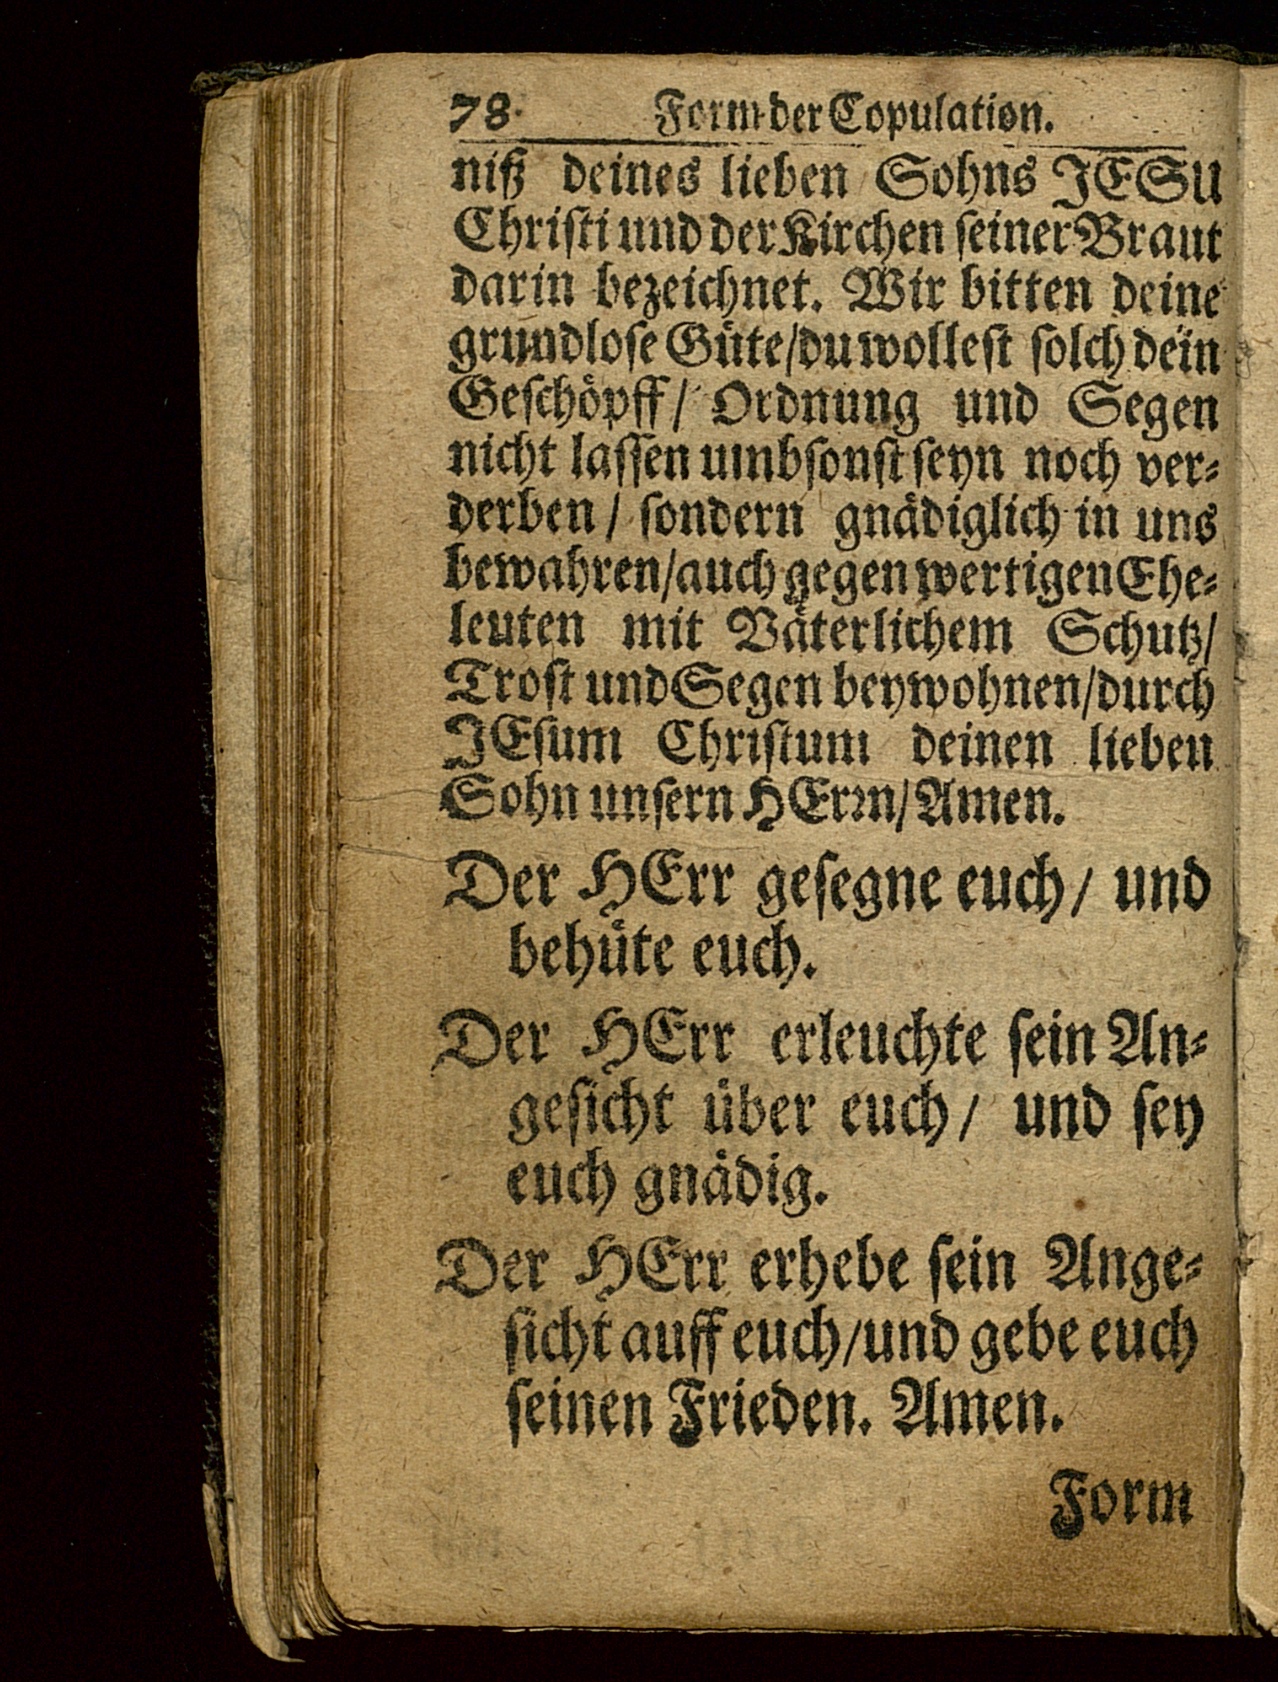 78 Form der Copulation.
niß deines lieben Sohns JESU
Christi und der Kirchen seiner Braut
darin bezeichnet. Wir bitten deine
grundlose Güte/du wollest solch dein
Geschöpff/ Ordnung und Segen
nicht lassen umbsonst seyn noch ver-
derben/ sondern gnädiglich in uns
bewahren/auch gegenwertigen Ehe-
leuten mit Väterlichem Schutz/
Trost und Segen beywohnen/durch
JEsum Christum deinen lieben
Sohn unsern HErrn/Amen.
Der HErr gesegne euch/ und
behüte euch.
Der HErr erleuchte sein An-
gesicht über euch/ und sey
euch gnädig.
Der HErr erhebe sein Ange-
sicht auff euch/und gebe euch
seinen Frieden. Amen.
Form